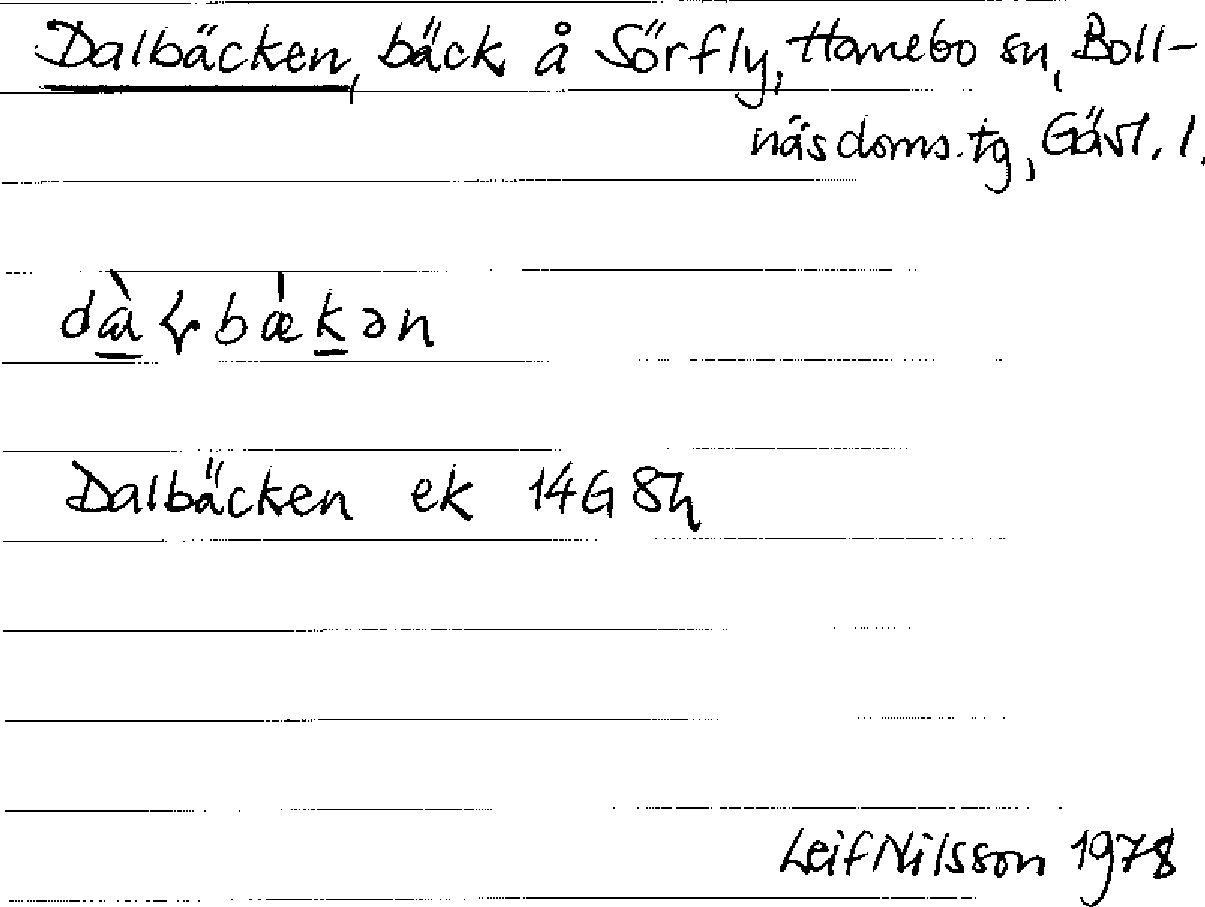 Dalbäcken, bäck å Sörfly, Hanebo sn, Boll-
näs doms.tg, Gävl. l.
Dalbäcken ek 14G 8h
Leif Nilsson 1978